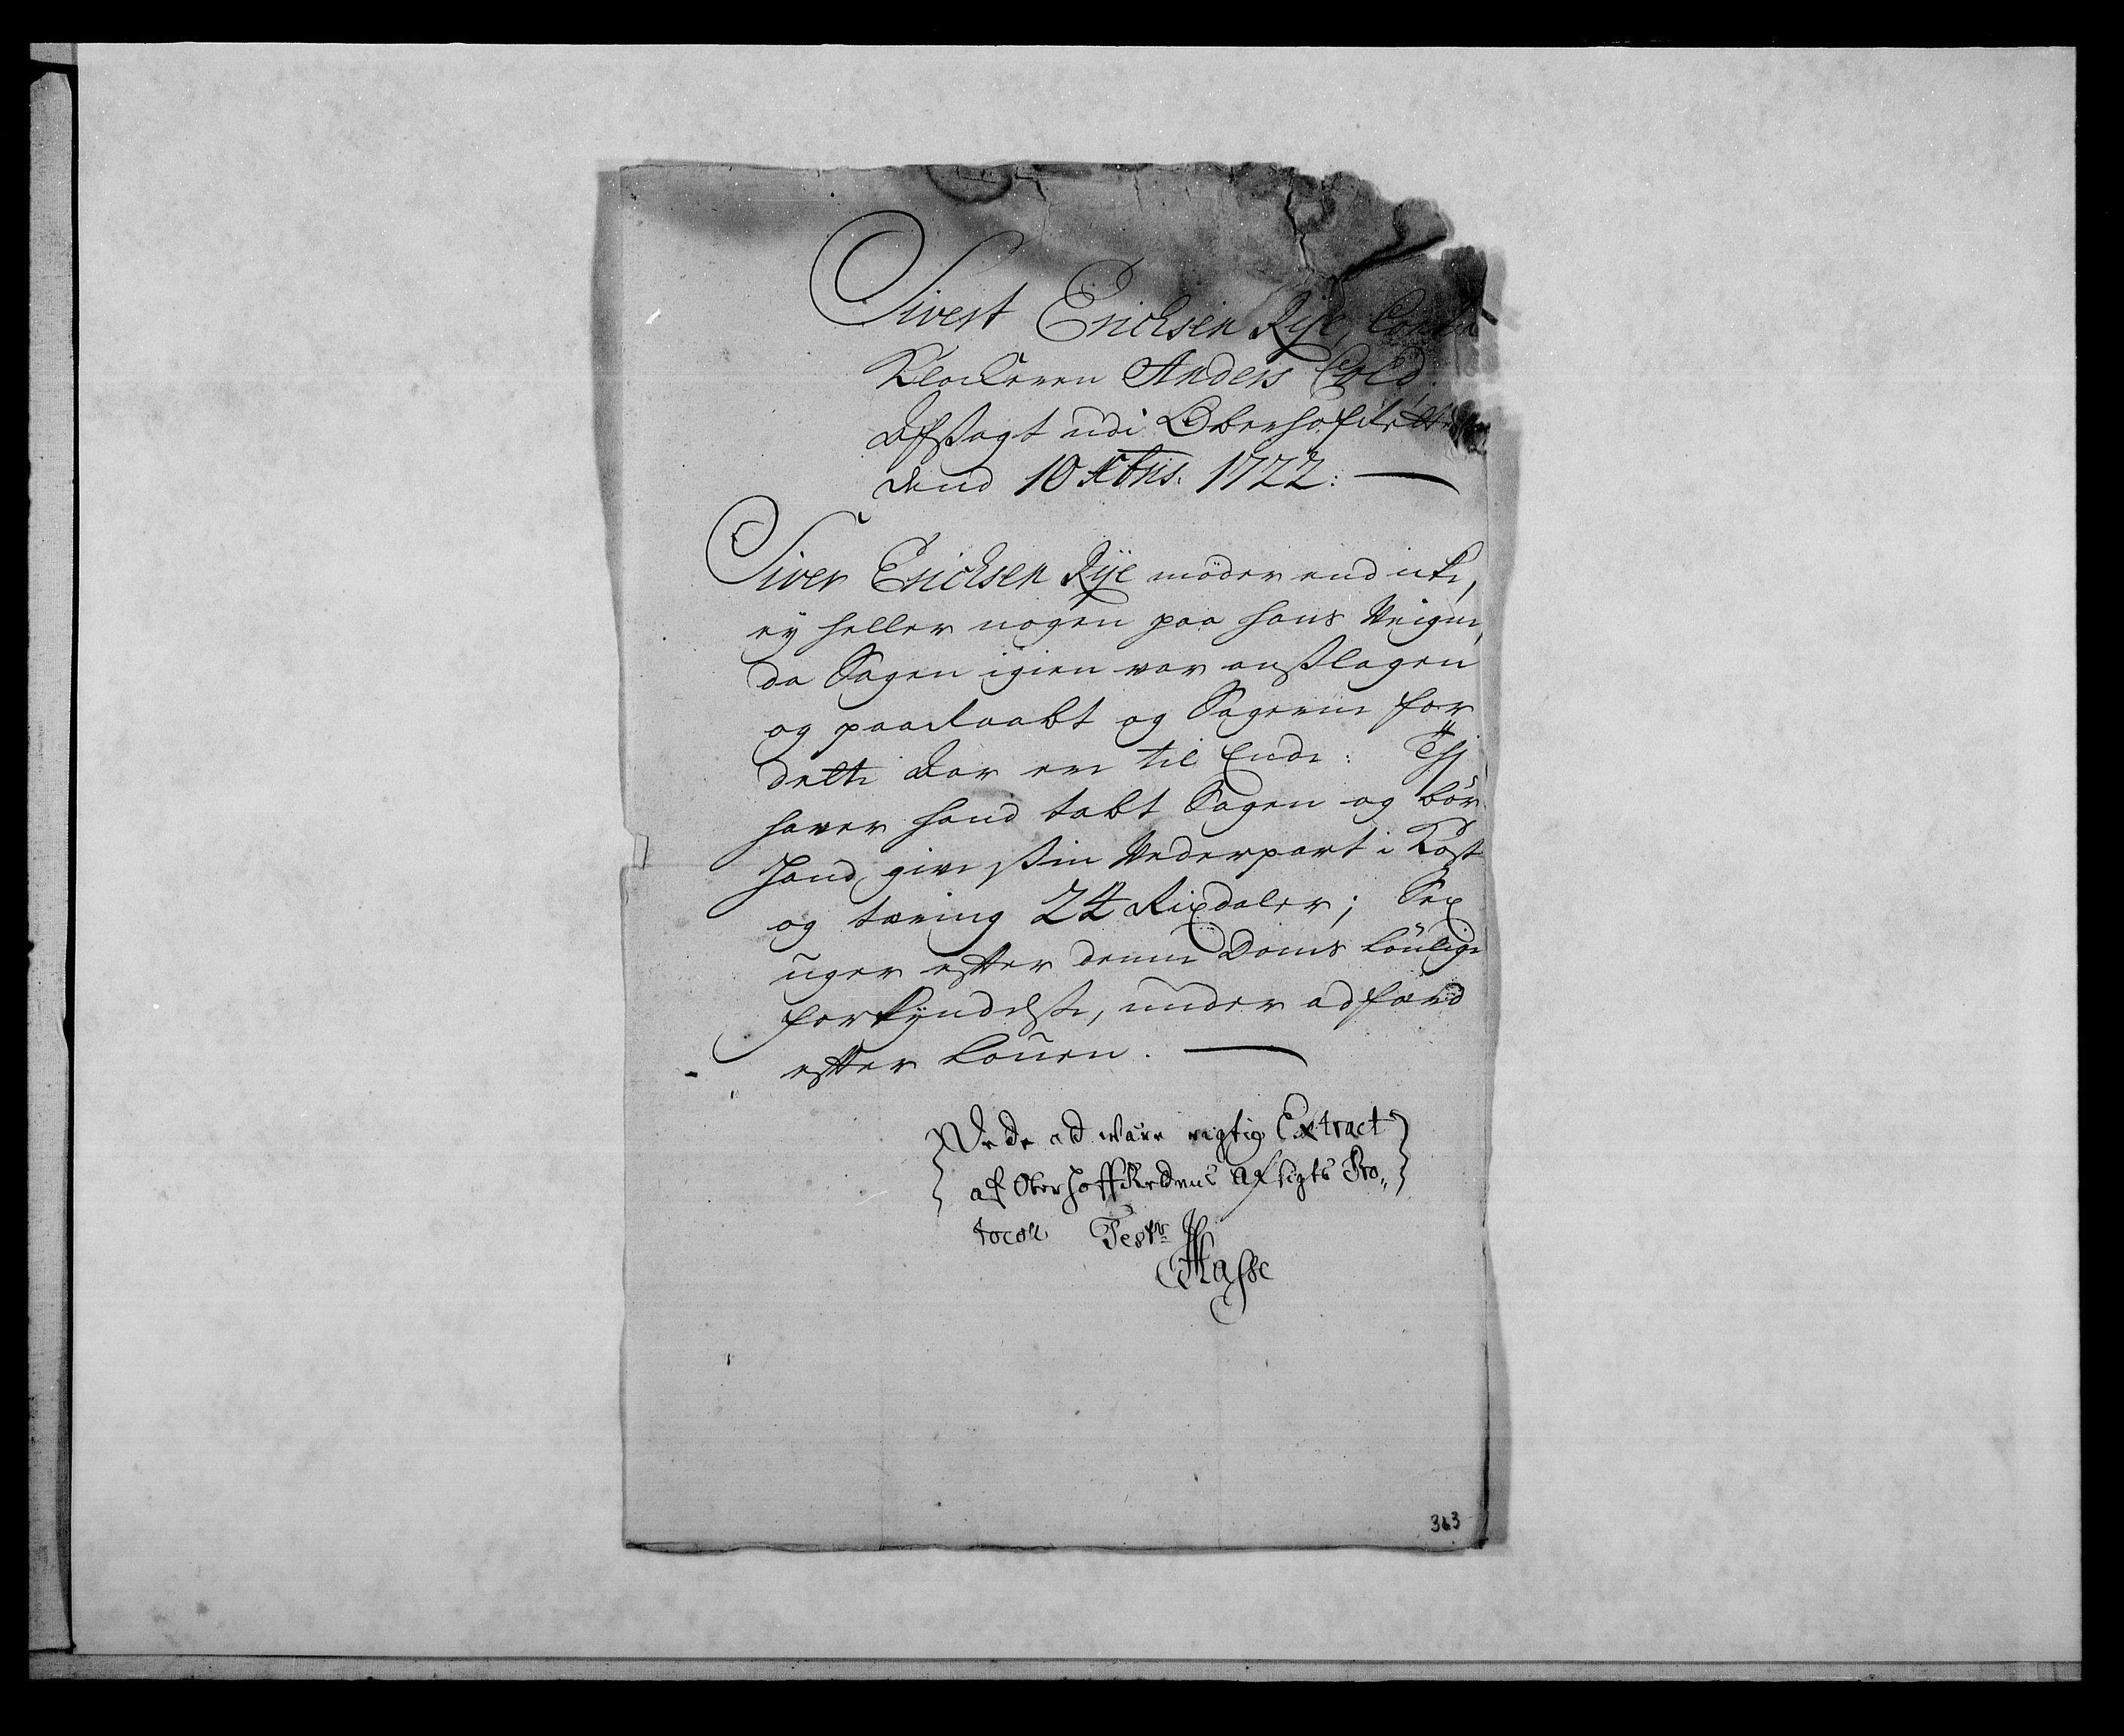 Sivert Erichsen Rye, Contra
Klocheren Anders Cold.
Afsagt udi Oberhofretten
dend 10 Xbris. 1722:
Siver Erichsen Rÿe möder end icke,
eÿ heller nogen paa hans Veigne,
da Sagen igien var anslagen
og paaraabt og Sagerne for
dette Aar ere til Ende: Thj
haver hand tabt Sagen og bör
hand give sin Vederpart i Kost
og tæring 24 Rixdaler; Sex
uger efter denne Doms louglige
forkÿndelse, under adfærd
efter Louen.
Dette at være rigtig Extract
af OberhoffRettens Afsigts Pro„
tocoll Test:
Hasse
363